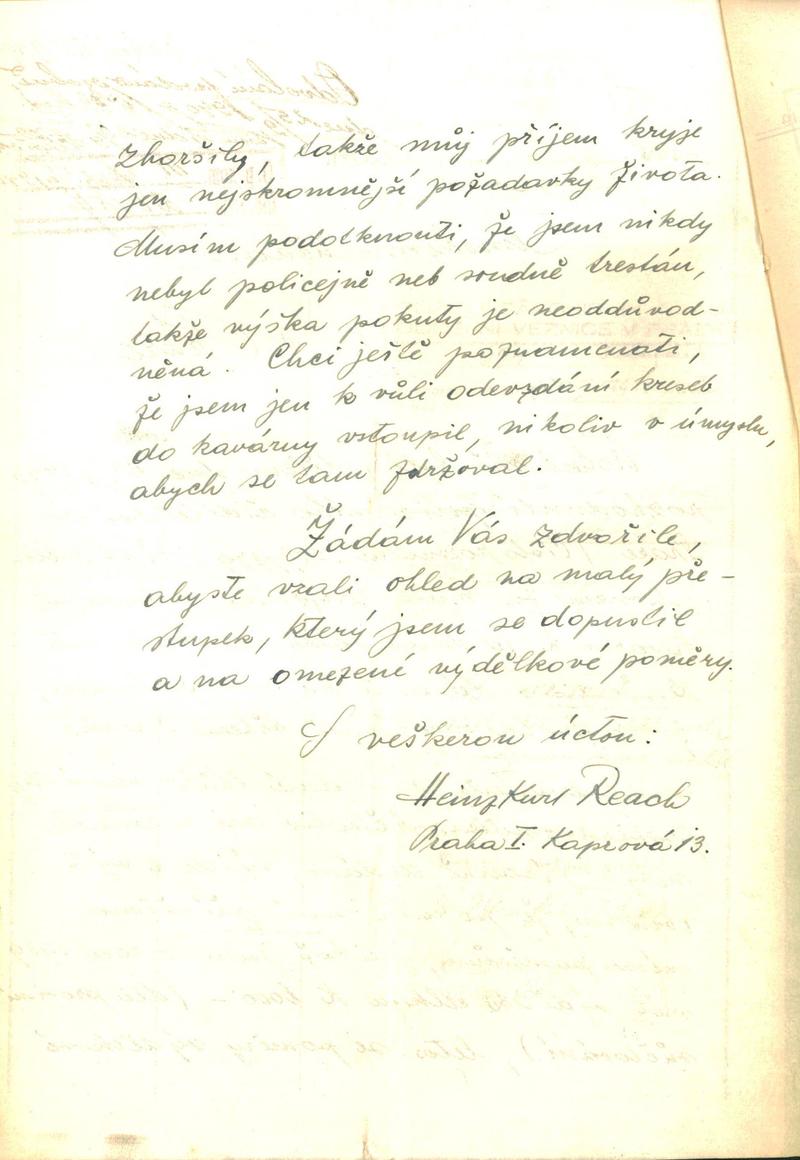 zhoršily, takže můj příjem kryje
jen nejskromnější požadavky života.
Musím podotknouti, že jsem nikdy
nebyl policejně neb soudně trestán,
takže výška pokuty je neoddůvod-
něná. Chci ještě poznamenati,
že jsem jen k vůli odevzdání kreseb
do kavárny vstoupil, nikoliv v úmyslu,
abych se tam zdržoval.
Žádám Vás zdvořile,
abyste vzali ohled na malý pře-
stupek, který jsem se dopustil
a na omezené výdělkové poměry.
S veškerou úctou:
Heinz Kurt Reach
Praha I. Kaprová 13.